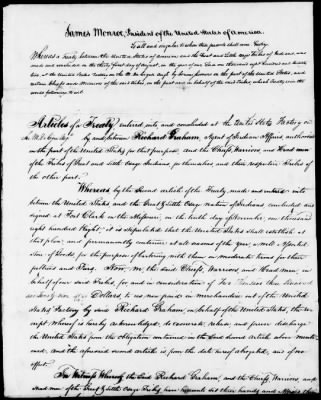 James Monroe, President of the United States of America,
To all and singular to whom these presents shall come, Greeting:
Whereas a Treaty between the United States of America and the Great and Little Osage Tribes of Indians, was
made and concluded on the thirty first day of August, in the year of our Lord one thousand eight hundred and twenty
two, at the United States Factory on the M. De Cigue, by Commissioners on the part of the United States, and
certain Chiefs and Warriors of the said tribes, on the part and in behalf of the said Tribes, which Treaty is in the
words following to wit:
Articles of a Treaty entered into and concluded at the United States Factory on
the M. De Cigue Augt. by and between Richard Graham, Agent of Indian Affairs, authorized
on the part of the United States for that purpose, and the Chiefs, Warriors, and Head
men of the Tribes of Great and Little Osage Indians, for themselves and their respective Tribes of
the other part.
Whereas by the second article of the Treaty made and entered into
between the United States and the Great & Little Osage nation of Indians concluded and
signed at Fort Clark on the Missouri, on the tenth day of November, one thousand
eight hundred & eight, it is stipulated that the United States shall establish at
that place, and permanently continue at all seasons of the year, a well assorted
Store of Goods for the purpose of bartering with them on moderate terms for their
peltries and Furs. Now, we, the said Chiefs, Warriors and Head men, in
behalf of our said Tribes, for and in consideration of Two Thousand three hundred
and twenty nine Dollars, to us now paid in merchandise out of the United
States Factory by said Richard Graham, on behalf of the United States, the re-
ceipt whereof is hereby acknowledged, do exonerate, release, and forever discharge
the United States from the obligation contained in the said second Article above mentio-
ned, and the aforesaid second article is from the date hereof abrogated, and of no
effect.
In Witness Whereof the said Richard Graham, and the Chiefs, Warriors, and
Head men of the Great & Little Osage Tribes, have hereunto set their hands, and affixed their